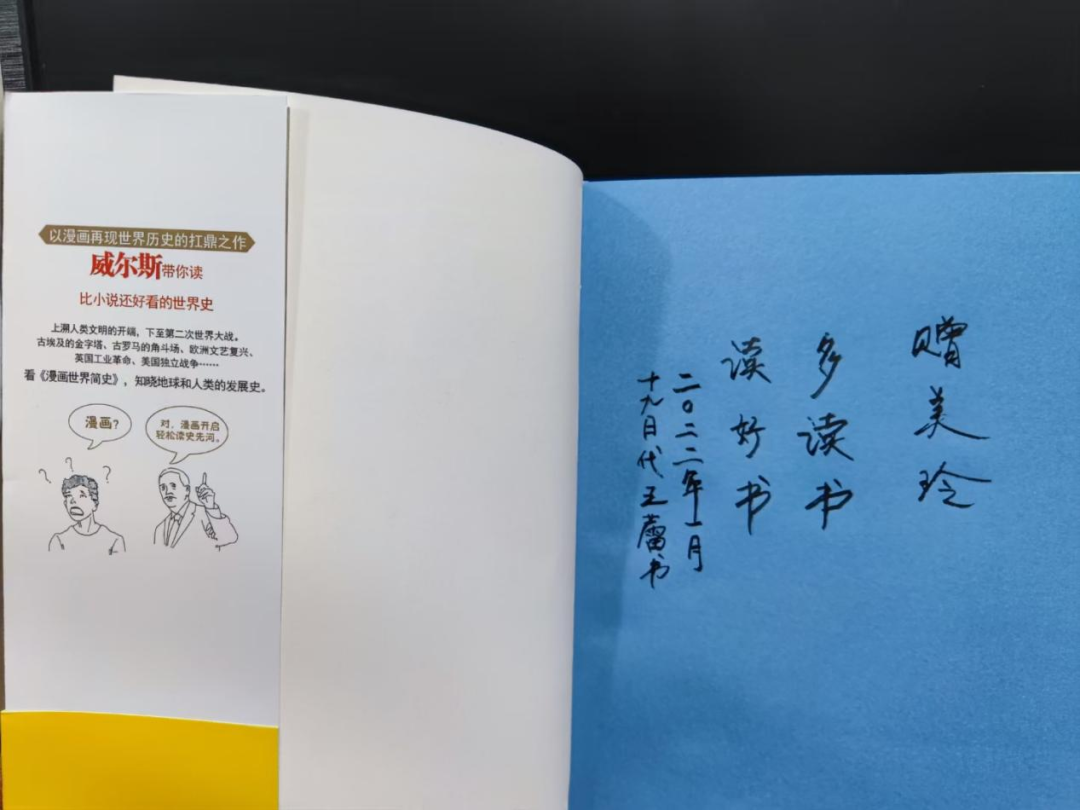 以漫画再现世界历史的扛鼎之作
威尔斯带你读
比小说还好看的世界史
上溯人类文明的开端，下至第二次世界大战。
古埃及的金字塔、古罗马的角斗场、欧洲文艺复兴、
英国工业革命、美国独立战争……
看《漫画世界简史》，知晓地球和人类的发展史。
漫画？
对，漫画开启
轻松读史先河。
? ? ?
赠美玲
多读书
读好书
二〇二二年一月
十九日代王蕾书